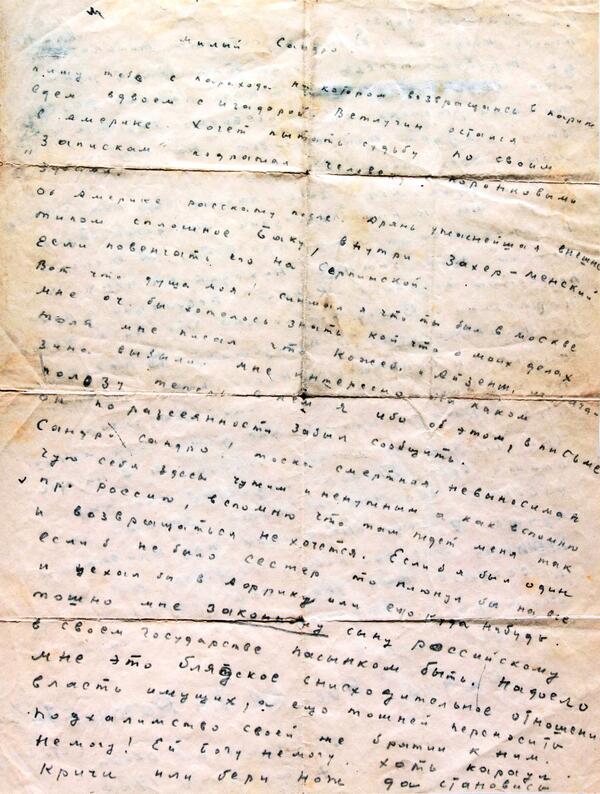 Милый Сандро!
пишу тебе с парохода на котором возвращаюсь в париж
Едем вдвоем с Изадорой. Ветлугин остался
в Америке. Хочет пытать судьбу по своим
"Запискам" подражая человеку с коронковыми
зубами.
Об Америке расскажу позже. Дрянь ужаснейшая внешне
типом сплошное Баку, внутри Захер-Менский
если повенчать его на Серпинской.
Вот что душа моя! Слышал я что ты был в Москве
мне оч. бы хотелось знать кой что о моих делах
Толя мне писал что Кожеб. Айзеншт. из мага-
зина выбыли. Мне интересно на каком
полозу теперь в нем я ибо об этом, в письме
он по разсеянности забыл сообщить.
Сандро Сандро! тоска смертная, невыносимая
чую себя здесь чужим и ненужным а как вспомню
про Россию, вспомню что там ждет меня так
и возвращаться не хочется. Если б я был один
если б не было сестер то плюнул бы на все
и уехал бы в Африку или ещо куда нибудь.
тошно мне законному сыну российскому
в своем государстве пасынком быть. Надоело
мне это блядское снисходительное отношени
власть имущих, а ещо тошней переносить
подхалимство своей же братии к ним.
Немогу! Ей богу немогу. Хоть караул
кричи или бери нож да становись